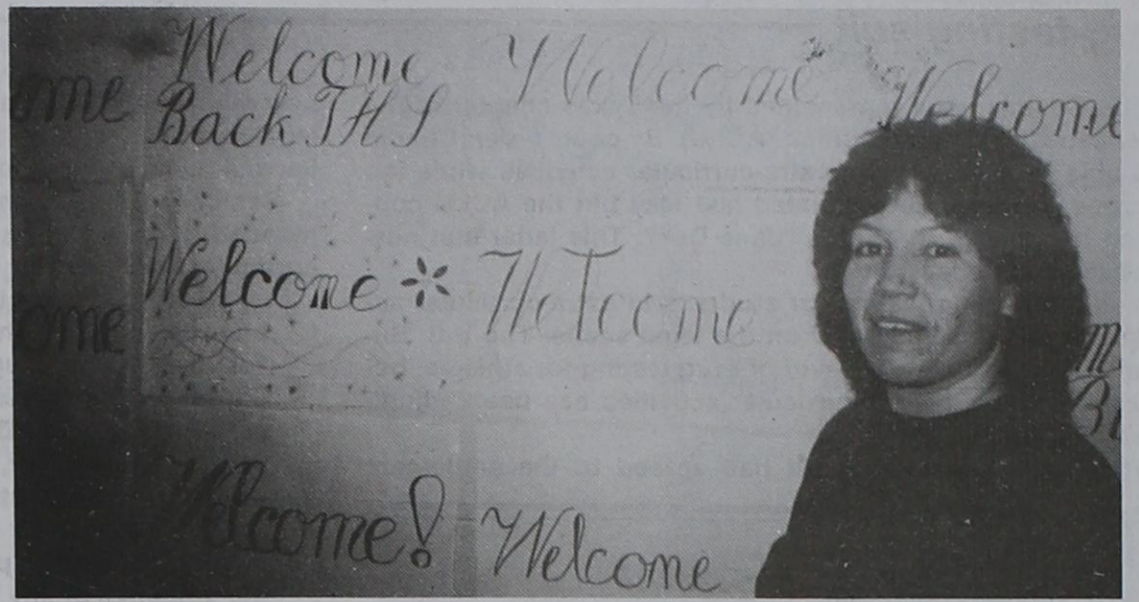 ome
Welcome
Back THS
Welcome
Welcome
ome
Welcome
Welcome
Welcome!
Welcome